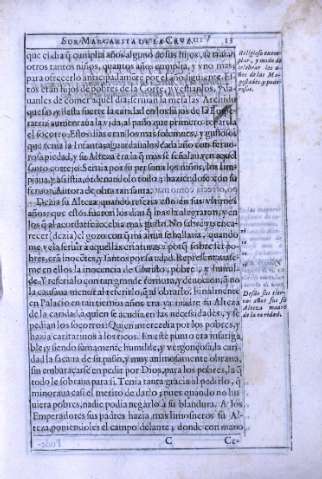 SOR MARGARITA DE LA CRVZ. 15
que el dia q̃ cumplia años alguno de sus hijos, se traian
otros tantos niños, quantos años cumplia, y vno mas,
para ofrecerlo anticipadamente por el año siguiente. Es
tos eran hijos de pobres de la Corte, y vestianlos, y da-
uanles de comer aquel dia; seruian la mesa las Archidu
quesas, y esta fuerte la caridad en los hijos de la Empe-
ratriz
el socorro. Estos dias eran los mas solemnes, y gustosos
que tenia la Infanta,
piedad, y su Alteza era la q̃ mas se señalaua en aquel
santo empleo. Seruia por su persona los niños, los lim-
piaua, y assistia,
Autora de obra tan santa.
Dezia su Alteza, quando referia esto en sus vltimos
años, que estos fueron los dias q̃ mas la alegraron, y en
los q̃ al acordarse recebia mas gusto. No sabrè yo encare
cer (dezia) el gozo con q̃ mi alma se hallaua, quando
me veia seruir a aquellas criaturas, porq̃ sobre ser po-
bres, erã inocẽtes, y santos por su edad. Representauase
me en ellos la inocencia de Christo, pobre, y humil-
de. Y referialo con tan grande ternura, y deuocion, que
la causaua
en Palacio en tantiernos años era ya madre su Alteza
de la caridad, a quien se acudia en las necesidades, y se
pedian los socorros: Quien intercedia por los pobres, y
hazia caritatiuos a los ricos. En este punto era insatiga
ble, y siendo sumamente humilde, y vergonçosa, la cari
dad la sacaua de su passo, y muy animosamente obraua,
sin embaraçarse en pedir por Dios, para los pobres, la q̃
todo le sobraua para si. Tenia tanta gracia al pedirlo, q̃
minoraua casi el merito de darlo; pues quando no hu
uiera pobres, nadie podia negarlo à su blandura. A los
Emperadores sus padres hazia mas limosneros su Al-
teza, poniendoles el camino delante, y donde con mano
C Ce-
Religioso exem
plar, y modo de
celebrar los a-
ños de las Ma-
gestades, y prin
cipes.
Desde sus tier
nos años fue su
Alteza madre
de la caridad.